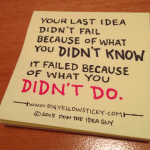 YOUR LAST IDEA
DIDN'T FAIL
BECAUSE OF WHAT
YOU DIDN'T KNOW
IT FAILED BECAUSE
OF WHAT YOU
DIDN'T DO.
WWW.BIGYELLOWSTICKY.COM
© 2013 DON THE IDEA GUY